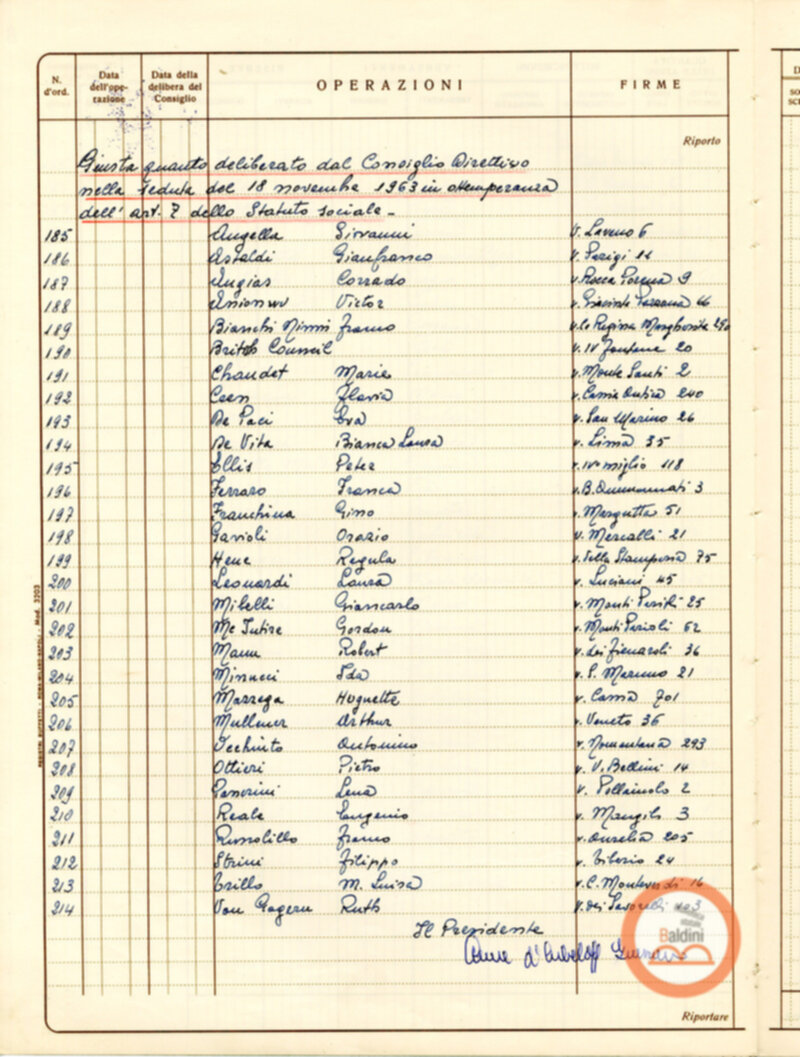 N. d'ord. Data dell'ope-razione Data della delibera del Consiglio OPERAZIONI FIRME
Riporto
Giusta quanto deliberato dal Consiglio Direttivo
nella seduta del 18 novembre 1963 in ottemperanza
dell'art. 7 dello Statuto sociale -
185 Angella Giovanni V. Laveno 6
186 Astaldi Gianfranco v. Parigi 11
187 Augias Corrado v. Rocca Porena 9
188 Victor v. Giacinta Pezzana
189 Bianchi Ninni Franco v.le Regina Margherita 290
190 British Council v. IV Fontane 20
191 Chaudet Marie v. Monte Santi 2
192 Ceen Flavia v. Cassia Antica 240
193 De Paci Eva v. San Marino 26
194 De Vita Bianca Laura v. Lima 35
195 Ellis Peter v. IV° miglio 118
196 Ferraro Franca v. B. 3
197 Franchina Gino v. Margutta 51
198 Gavioli Orazio v. Mercalli 21
199 Hene Regula v. della Stamperia 75
200 Leonardi Laura v. Luciani 45
201 Mibelli Giancarlo v. Monti Parioli 25
202 Mc Intire Gordon v. Monti Parioli 62
203 Mann Robert v. dei Fienaroli 36
204 Minucci Ida v. S. Marino 21
205 Marzega Huguette v. Cassia 701
206 Arthur v. Veneto 36
207 Occhiuto Antonino v. Nomentana 293
208 Ottieri Pietro v. V. Bellini 14
209 Lena v. Pollaiuolo 2
210 Reale Eugenio v. Mangili 3
211 Russolillo Franco v. Aurelia 205
212 Strini Filippo v. Tiberio 24
213 Trillo M. Luisa v. C. Monteverdi 16
214 Von Gagern Ruth v. dei Savorelli
Il Presidente
Anne d'Arbeloff
Baldini
Riportare